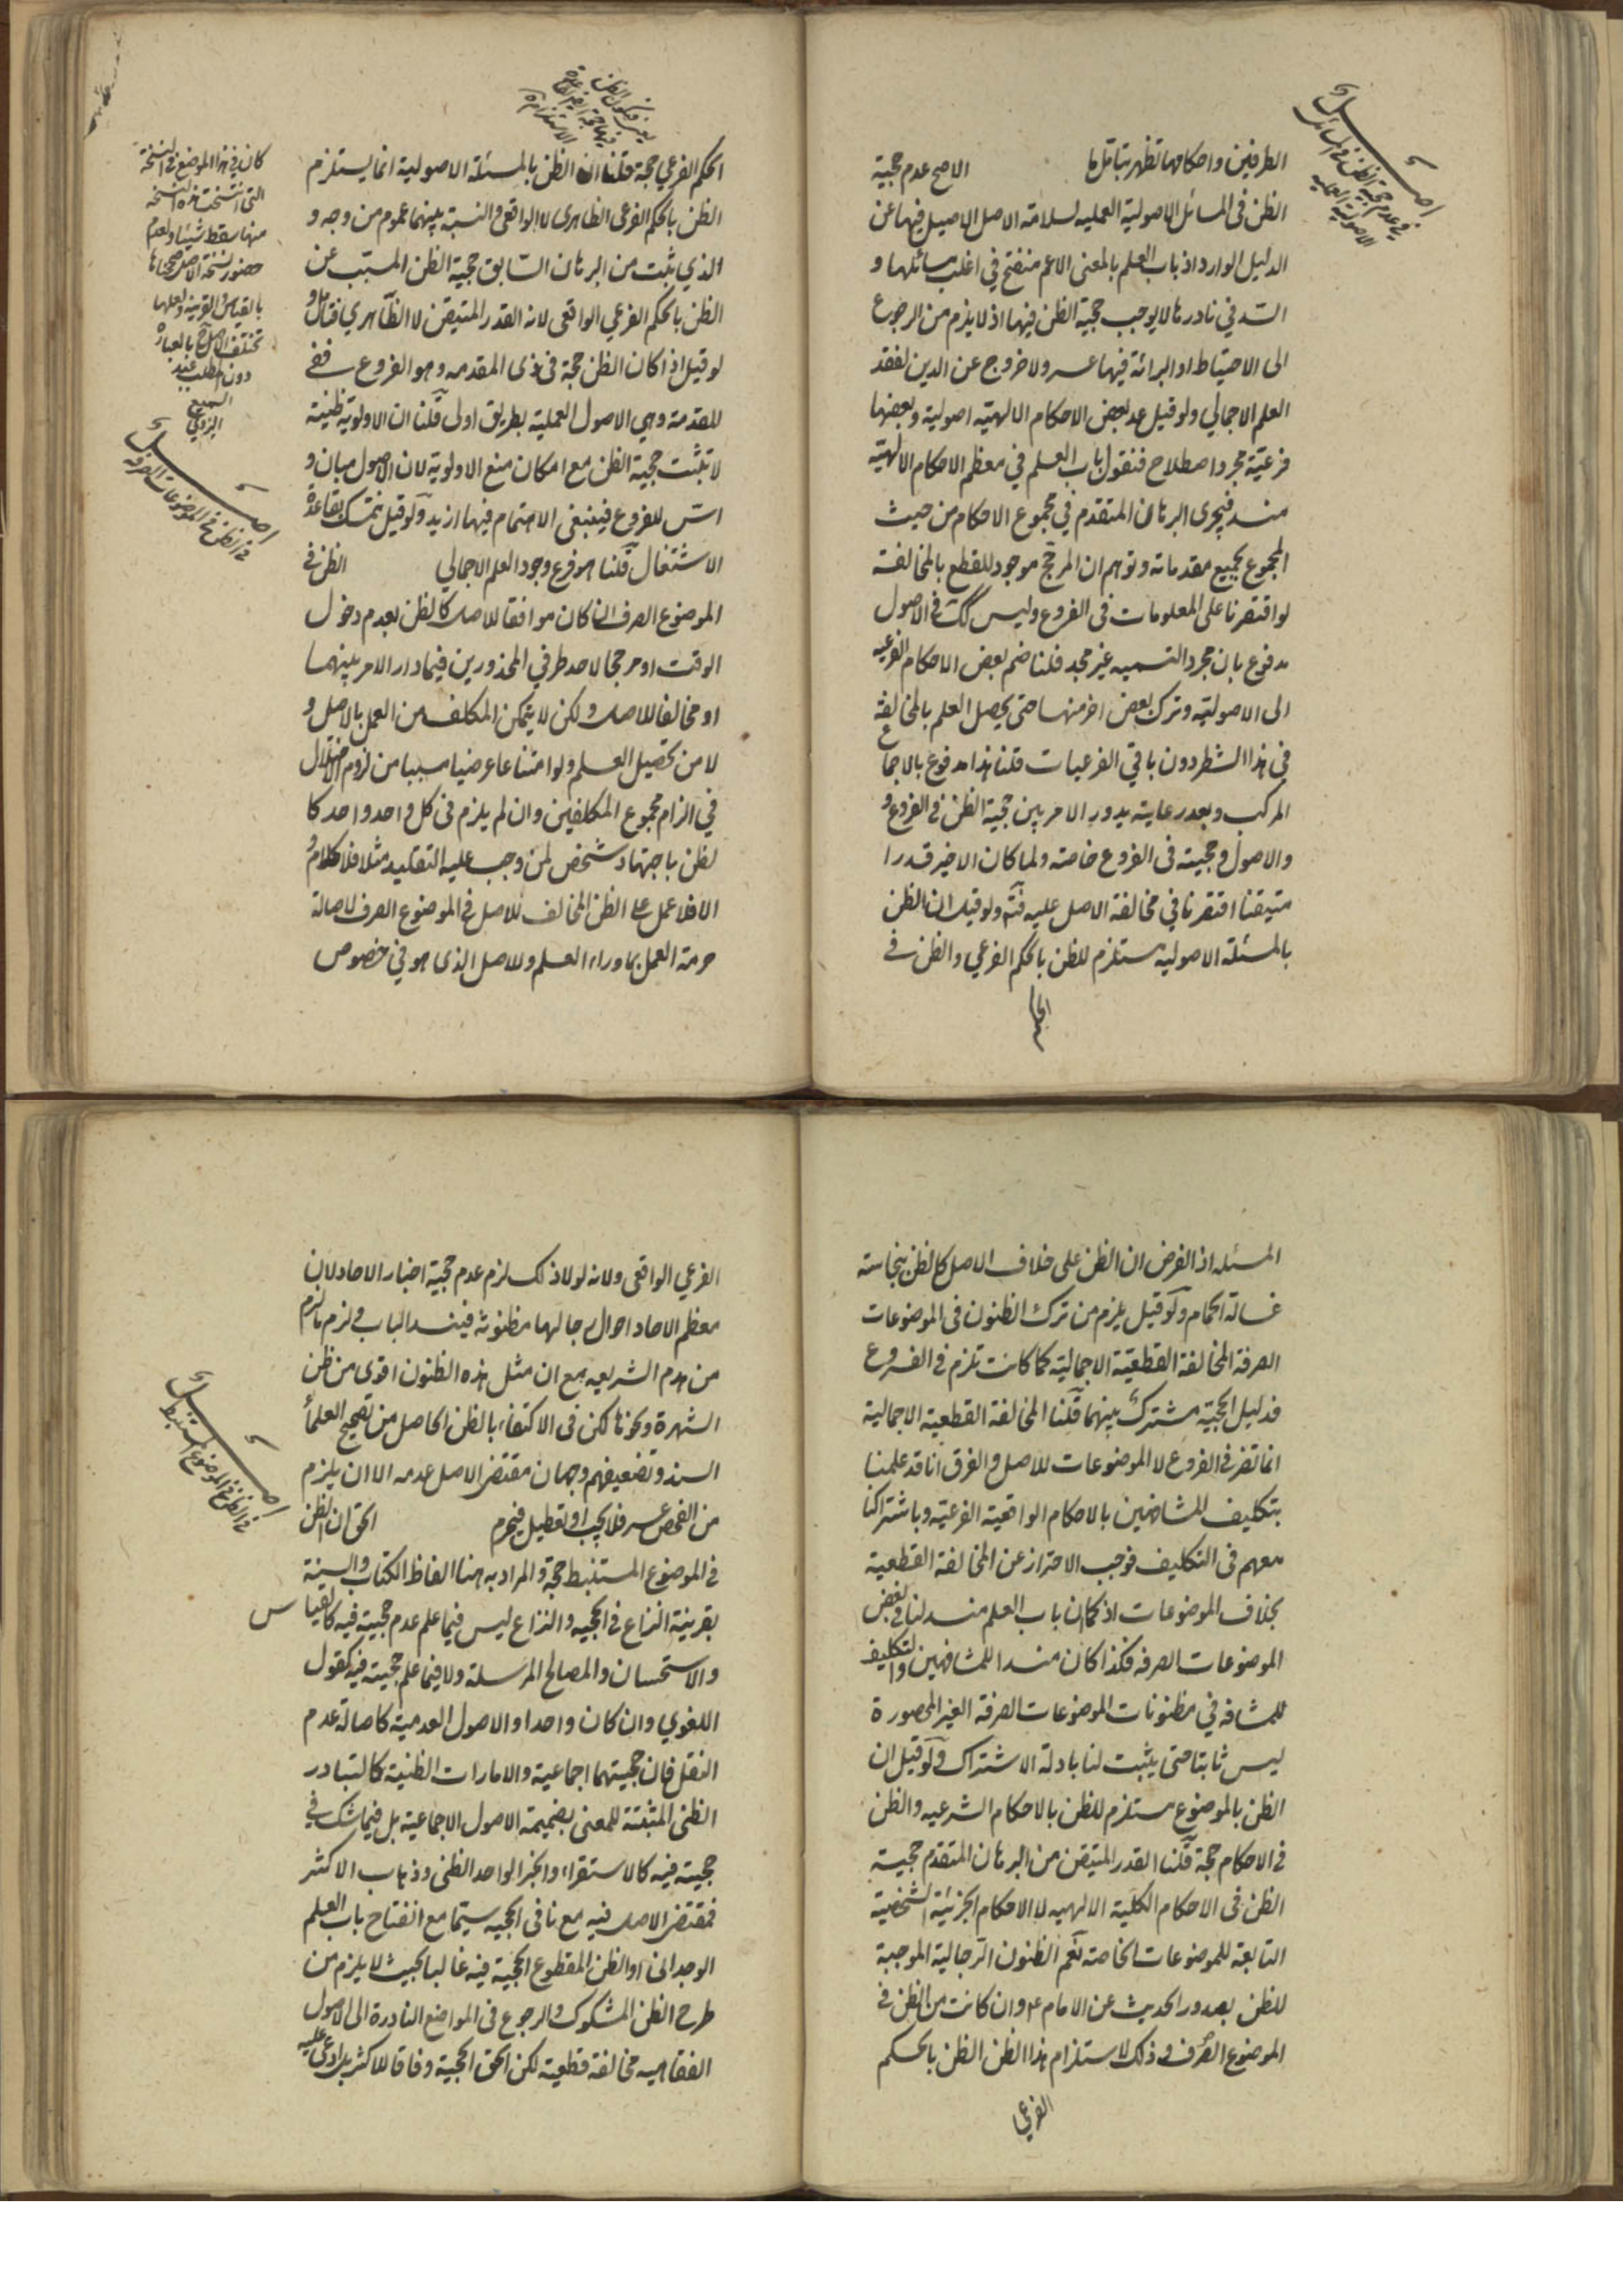 اصل
في عدم حجية الظن في المسائل
الاصولية العملية
الطرفين واحكامهما تظهر بتامل ما الاصح عدم حجية
الظن في المسائل الاصولية العملية لسلامة الاصل الاصيل فيها عن
الدليل الوارد اذ باب العلم بالمعنى الاعم منفتح في اغلب مسائلها و
السد في نادرها لا يوجب حجية الظن فيها اذ لا يلزم من الرجوع
الى الاحتياط او البرائة فيها عسر ولا خروج عن الدين لفقد
العلم الاجمالي ولو قيل عد بعض الاحكام الالهية اصولية وبعضها
فرعية مجرد اصطلاح فنقول باب العلم في معظم الاحكام الالهية
منسد فيجرى البرهان المتقدم في مجموع الاحكام من حيث
المجموع بجميع مقدماته وتوهم ان المرجح موجود للقطع بالمخالفة
لو اقتصرنا على المعلومات في الفروع وليس كك في الاصول
مدفوع بان مجرد التسميه غير مجد فلنا ضم بعض الاحكام الفرعيه
الى الاصوليه وترك بعض اخر منها حتى يحصل العلم بالمخالفة
في هذا الشطر دون باقي الفرعيات قلنا هذا مدفوع بالاجماع
المركب وبعد رعايته يدور الامر بين حجية الظن في الفروع و
والاصول وحجيته في الفروع خاصة ولما كان الاخير قدرا
متيقنا اقتصرنا في مخالفة الاصل عليه فتم ولو قيل ان الظن
بالمسئلة الاصوليه مستلزم للظن بالحكم الفرعي والظن في
الحكم
الحكم الفرعي حجة قلنا ان الظن بالمسئلة الاصولية انما يستلزم
الظن بالحكم الفرعى الظاهرى لا الواقعى والنسبة بينهما عموم من وجه و
الذي ثبت من البرهان السابق حجية الظن المسبب عن
الظن بالحكم الفرعي الواقعى لانه القدر المتيقن لا الظاهري فتامل و
لو قيل اذا كان الظن حجة في ذى المقدمه وهو الفروع ففى
المقدمة وهي الاصول العملية بطريق اولى قلنا ان الاولوية ظنية
لا تثبت حجية الظن مع امكان منع الاولوية لان الاصول مبان و
اسّ للفروع فينبغى الاهتمام فيها ازيد ولو قيل نتمسك بقاعدة
الاشتغال قلنا هو فرع وجود العلم الاجمالي الظن في
الموضوع الصرف ان كان موافقا للاصل كالظن بعدم دخول
الوقت او مرجحا لاحد طرفي المحذورين فيما دار الامر بينهما
او مخالفا للاصل ولكن لا يتمكن المكلف من العمل بالاصل و
لا من تحصيل العلم ولو امتناعا عرضيا مسببا من لزوم الاختلال
في الزام مجموع المكلفين وان لم يلزم في كل واحد واحد كا
لظن باجتهاد شخص لمن وجب عليه التقليد مثلا فلا كلام و
الا فلا عمل على الظن المخالف للاصل في الموضوع الصرف لاصالة
حرمة العمل بما وراء العلم وللاصل الذى هو في خصوص
كان في هذا الموضع في النسخة
التي انتسخت هذه النسخه
منها سقط شيئا ولعدم
حضور نسخة الاصل صححناها
بالقياس والقرينة ولعلها
تختلف الاصل بالعبارة
دون المطلب عبد
السميع
اليزدي
اصل
في الظن في الموضوعات الصرفه
المسئله اذ الفرض ان الظن على خلاف الاصل كالظن بنجاسة
غسالة الحمام ولو قيل يلزم من ترك الظنون في الموضوعات
الصرفة المخالفة القطعية الاجمالية كما كانت تلزم في الفروع
فدليل الحجية مشترك بينهما قلنا المخالفة القطعية الاجمالية
انما تضر في الفروع لا الموضوعات للاصل والفرق انا قد علمنا
بتكليف المشافهين بالاحكام الواقعية الفرعية وباشتراكنا
معهم في التكليف فوجب الاحتراز عن المخالفة القطعية
بخلاف الموضوعات اذ كما ان باب العلم منسد لنا في بعض
الموضوعات الصرفه فكذا كان منسدا للمشافهين والتكليف
للمشافه في مظنونات الموضوعات الصرفة الغير المحصورة
ليس ثابتا حتى يثبت لنا بادلة الاشتراك ولو قيل ان
الظن بالموضوع مستلزم للظن بالاحكام الشرعيه والظن
في الاحكام حجة قلنا القدر المتيقن من البرهان المتقدم حجية
الظن في الاحكام الكلية الالهيه لا الاحكام الجزئية الشخصية
التابعة للموضوعات الخاصة نعم الظنون الرجالية الموجبة
للظن بصدور الحديث عن الامام ع وان كانت من الظن في
الموضوع الصرف وذلك لاستلزام هذا الظن الظن بالحكم
الفرعي
الفرعي الواقعى ولانه لولا ذلك لزم عدم حجية اخبار الاحاد لان
معظم الاحاد احوال رجالها مظنونة فينسد الباب ولزم ما لزم
من هدم الشريعه مع ان مثل هذه الظنون اقوى من ظن
الشهرة ونحوها لكن في الاكتفاء بالظن الحاصل من تصحيح العلماء
السند وتضعيفهم وجهان مقتضى الاصل عدمه الا ان يلزم
من الفحص عسر فلا يجب او تعطيل فيحرم الحق ان الظن
في الموضوع المستنبط حجة والمراد به هنا الفاظ الكتاب والسنة
بقرينة النزاع في الحجيه والنزاع ليس فيما علم عدم حجيته فيه كالقياس
والاستحسان والمصالح المرسلة ولا فيما علم حجيته فيه كقول
اللغوي وان كان واحدا والاصول العدمية كاصالة عدم
النقل فان حجيتهما اجماعية والامارات الظنية كالتبادر
الظنى المثبتة للمعنى بضميمة الاصول الاجماعية بل فيما شك في
حجيته فيه كالاستقراء والخبر الواحد الظنى وذهاب الاكثر
فمقتضى الاصل فيه مع نافى الحجيه سيما مع انفتاح باب العلم
الوجدانى او الظن المقطوع الحجية فيه غالبا بحيث لا يلزم من
طرح الظن المشكوك والرجوع في المواضع النادرة الى الاصول
الفقاهيه مخالفة قطعية لكن الحق الحجية وفاقا للاكثر بل ادعى عليه
اصل
في الظن في الموضوع المستنبط